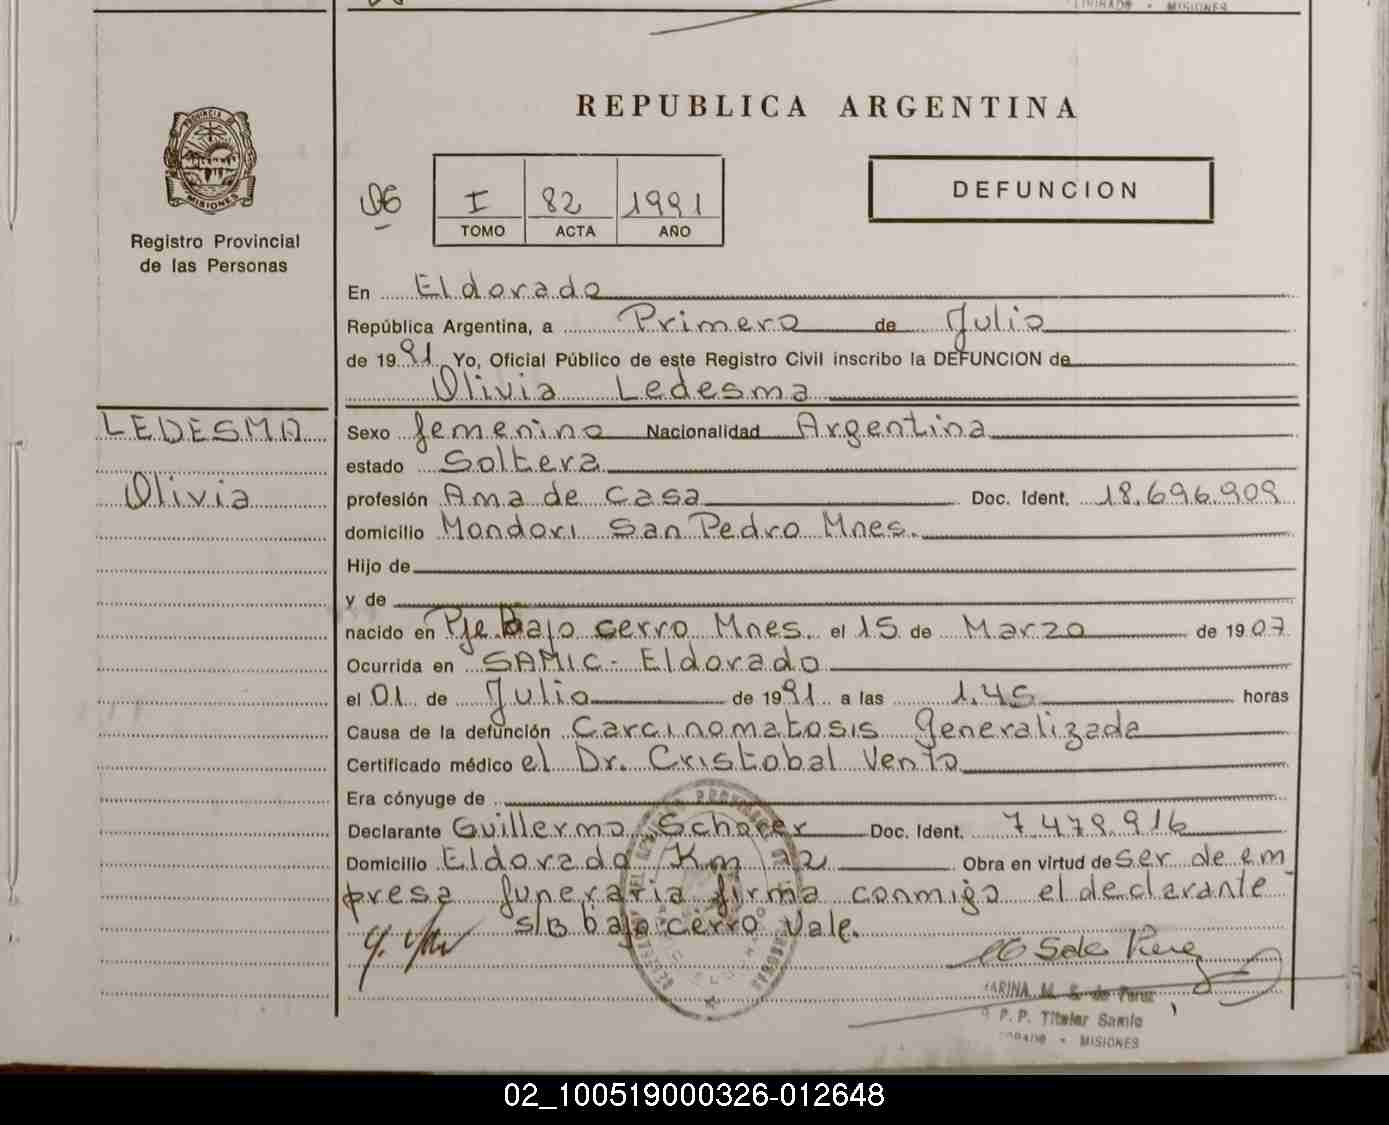 REPUBLICA ARGENTINA
PROVINCIA DE MISIONES
Registro Provincial
de las Personas
I 82 1991
TOMO ACTA AÑO
DEFUNCION
En Eldorado
República Argentina, a Primero de Julio
de 1991 Yo, Oficial Público de este Registro Civil inscribo la DEFUNCION de
Olivia Ledesma
LEDESMA
Olivia
Sexo femenino Nacionalidad Argentina
estado Soltera
profesión Ama de Casa Doc. Ident. 18.696.909
domicilio Mondori San Pedro Mnes.
Hijo de
y de
nacido en Pje. Bajo cerro Mnes. el 15 de Marzo de 1907
Ocurrida en SAMIC - Eldorado
el 01 de Julio de 1991 a las 1,45 horas
Causa de la defunción Carcinomatosis Generalizada
Certificado médico el Dr. Cristobal Vento
Era cónyuge de
Declarante Guillermo Schafer Doc. Ident. 7.479.916
Domicilio Eldorado Km Obra en virtud de ser de em
presa funeraria firma conmigo el declarante
s/B bajo cerro Vale.
MARINA M. S. de Perez
P.P. Titular Samic
ELDORADO - MISIONES
02_100519000326-012648